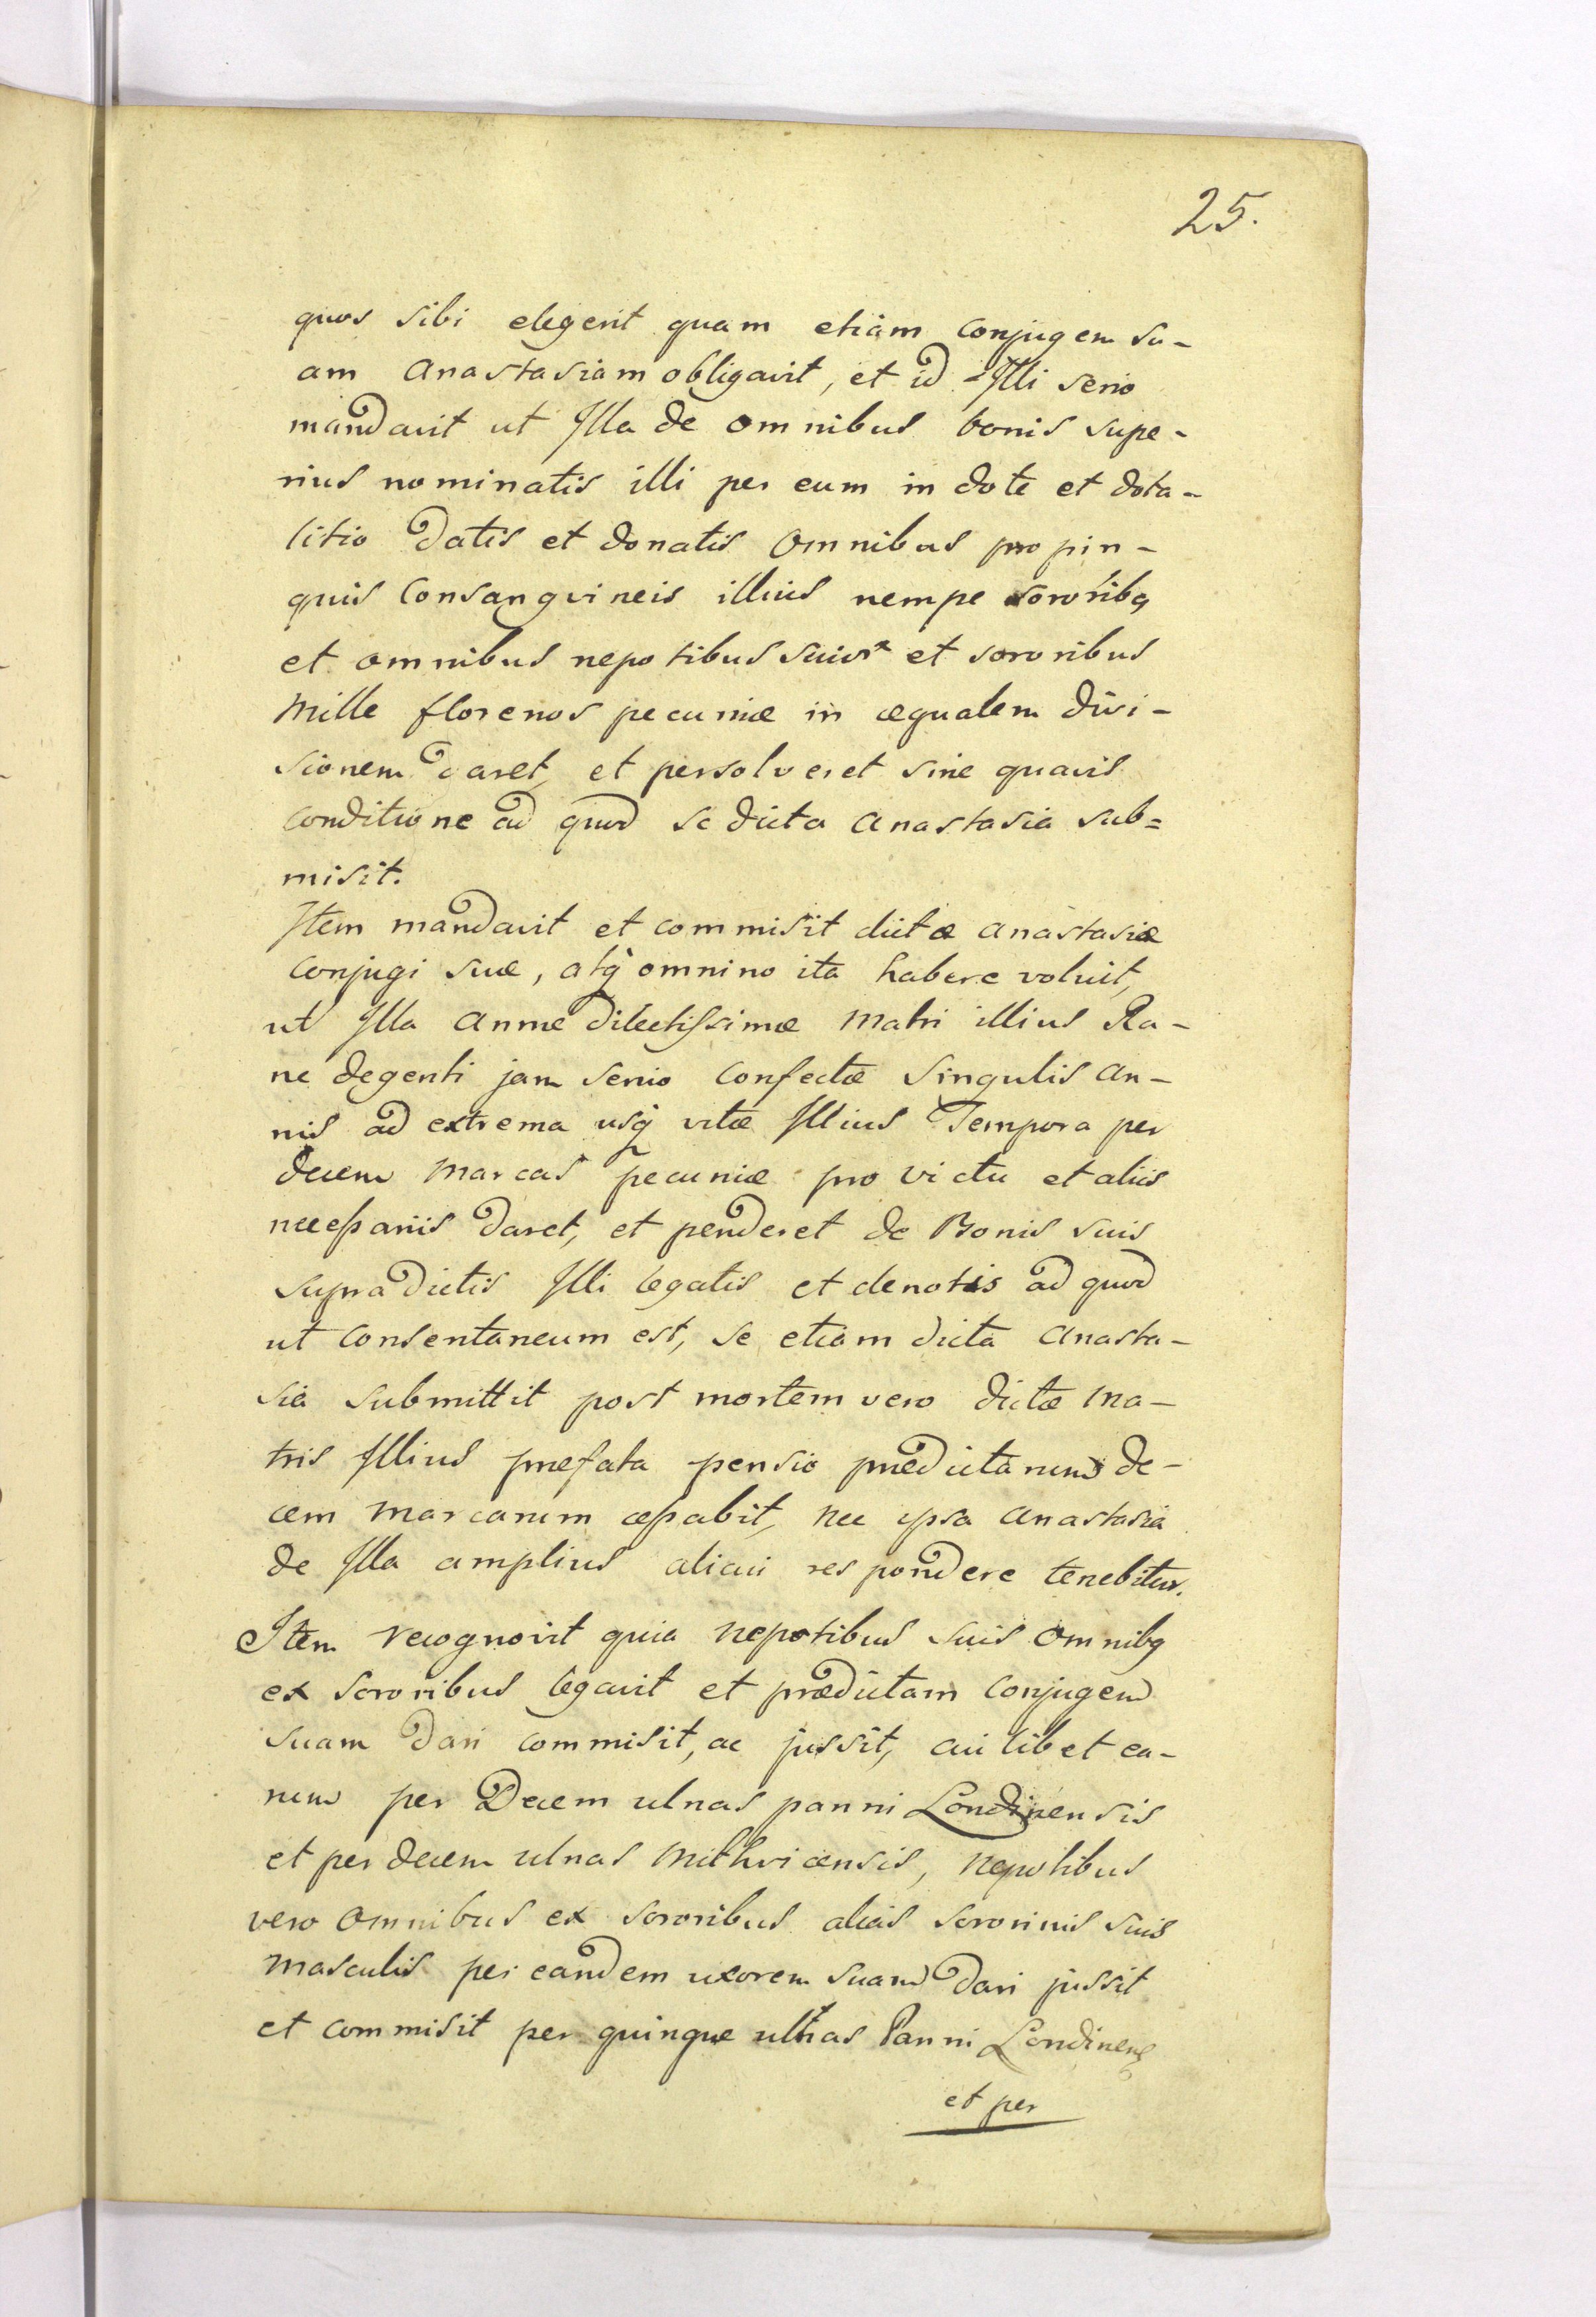 25.
quos sibi elegerit quam etiam conjugem su-
am Anastasiam obligavit, et id Illi serio
mandavit ut Illa de omnibus bonis supe-
rius nominatis illi per eum in dote et dota-
litio datis et donatis omnibus propin-
quis consangvineis illius nempe sororibq
et omnibus nepotibus suis et sororibus
Mille florenos pecuniæ in æqualem divi-
sionem daret, et persolveret sine quavis
conditione ad quod se dicta Anastasia sub=
misit.
Item mandavit et commisit dictæ Anastasiæ
conjugi suæ, atq omnino ita habere voluit,
ut Illa Annæ dilectissimæ Matri illius Ra-
ne degenti jam senio confectæ singulis an-
nis ad extrema usq vitæ Illius Tempora per
decem Marcas pecuniæ pro victu et aliis
necessariis daret, et penderet de Bonis suis
supradictis Illi legatis et denotis ad quod
ut consentaneum est, se etiam dicta Anasta-
sia submittit post mortem vero dictæ ma-
tris Illius præfata pensio prædictarum de-
cem Marcarum cessabit, nec ipsa Anastasia
de Illa amplius alicui respondere tenebitur.
Item recognovit quia nepotibus suis omnibq
ex sororibus legavit et prædictam conjugem
suam dari commisit, ac jussit, cuilibet ea-
rum per Decem ulnas panni Londinensis
et per decem ulnas Mithvicensis, nepotibus
vero omnibus ex sororibus alias sororinis suis
masculis per eandem uxorem suam dari jussit
et commisit per quinque ulnas Panni Londinens
et per